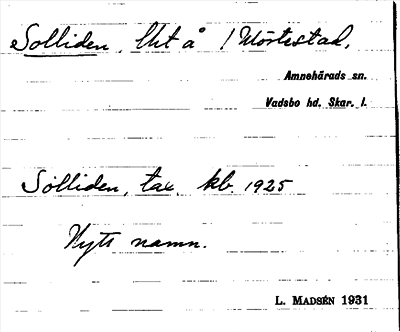 Solliden, Lht å 1 Mörtestad,
Amnehärads sn.
Vadsbo hd. Skar. l.
Solliden, tax. kb. 1925
Nytt namn.
L. MADSÉN 1931